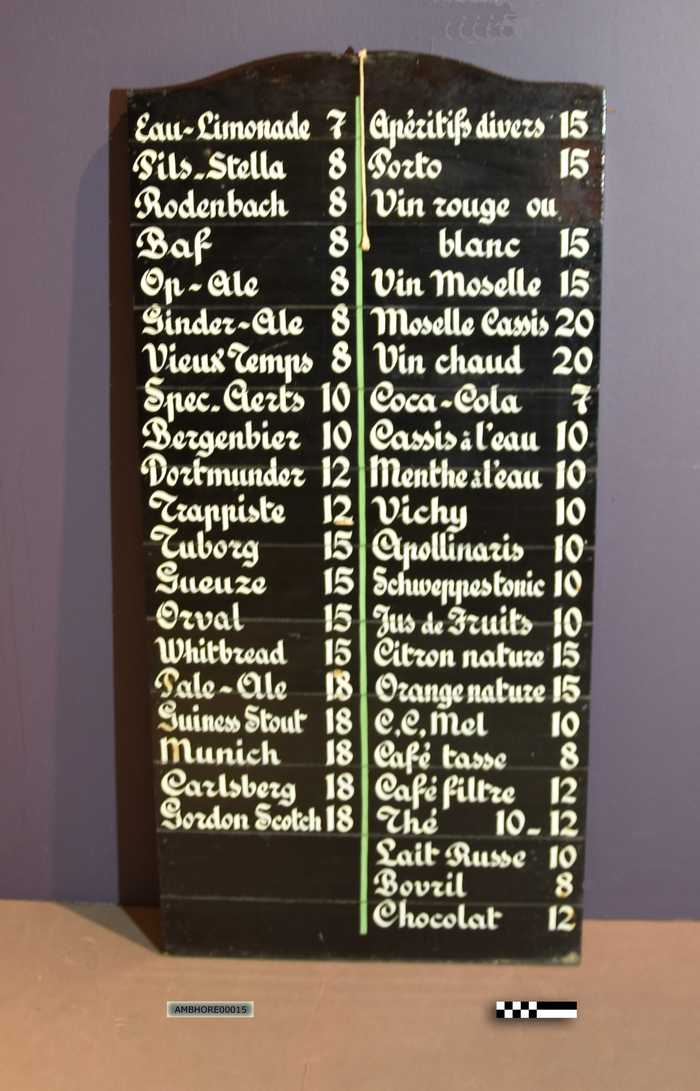 Eau-Limonade 7
Pils-Stella 8
Rodenbach 8
Baf 8
Op-Ale 8
Ginder-Ale 8
Vieux Temps 8
Spec. Aerts 10
Bergenbier 10
Dortmunder 12
Trappiste 12
Tuborg 15
Gueuze 15
Orval 15
Whitbread 15
Pale-Ale 18
Guiness Stout 18
Munich 18
Carlsberg 18
Gordon Scotch 18
Apéritifs divers 15
Porto 15
Vin rouge ou
blanc 15
Vin Moselle 15
Moselle Cassis 20
Vin chaud 20
Coca-Cola 7
Cassis à l'eau 10
Menthe à l'eau 10
Vichy 10
Apollinaris 10
Schweppes tonic 10
Jus de Fruits 10
Citron nature 15
Orange nature 15
C.C. Mel 10
Café tasse 8
Café filtre 12
Thé 10-12
Lait Russe 10
Bovril 8
Chocolat 12
AMBHORE00015